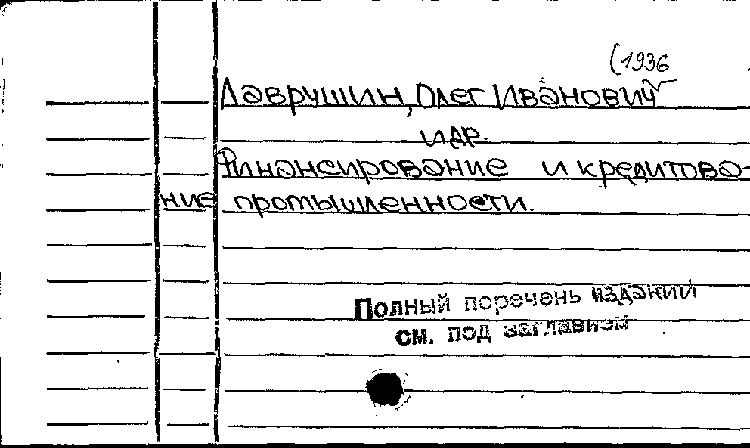 (1936
Лаврушин, Олег Иванович
и др.
Финансирование и кредитова-
ние промышленности.
Полный перечень изданий
см. под заглавием